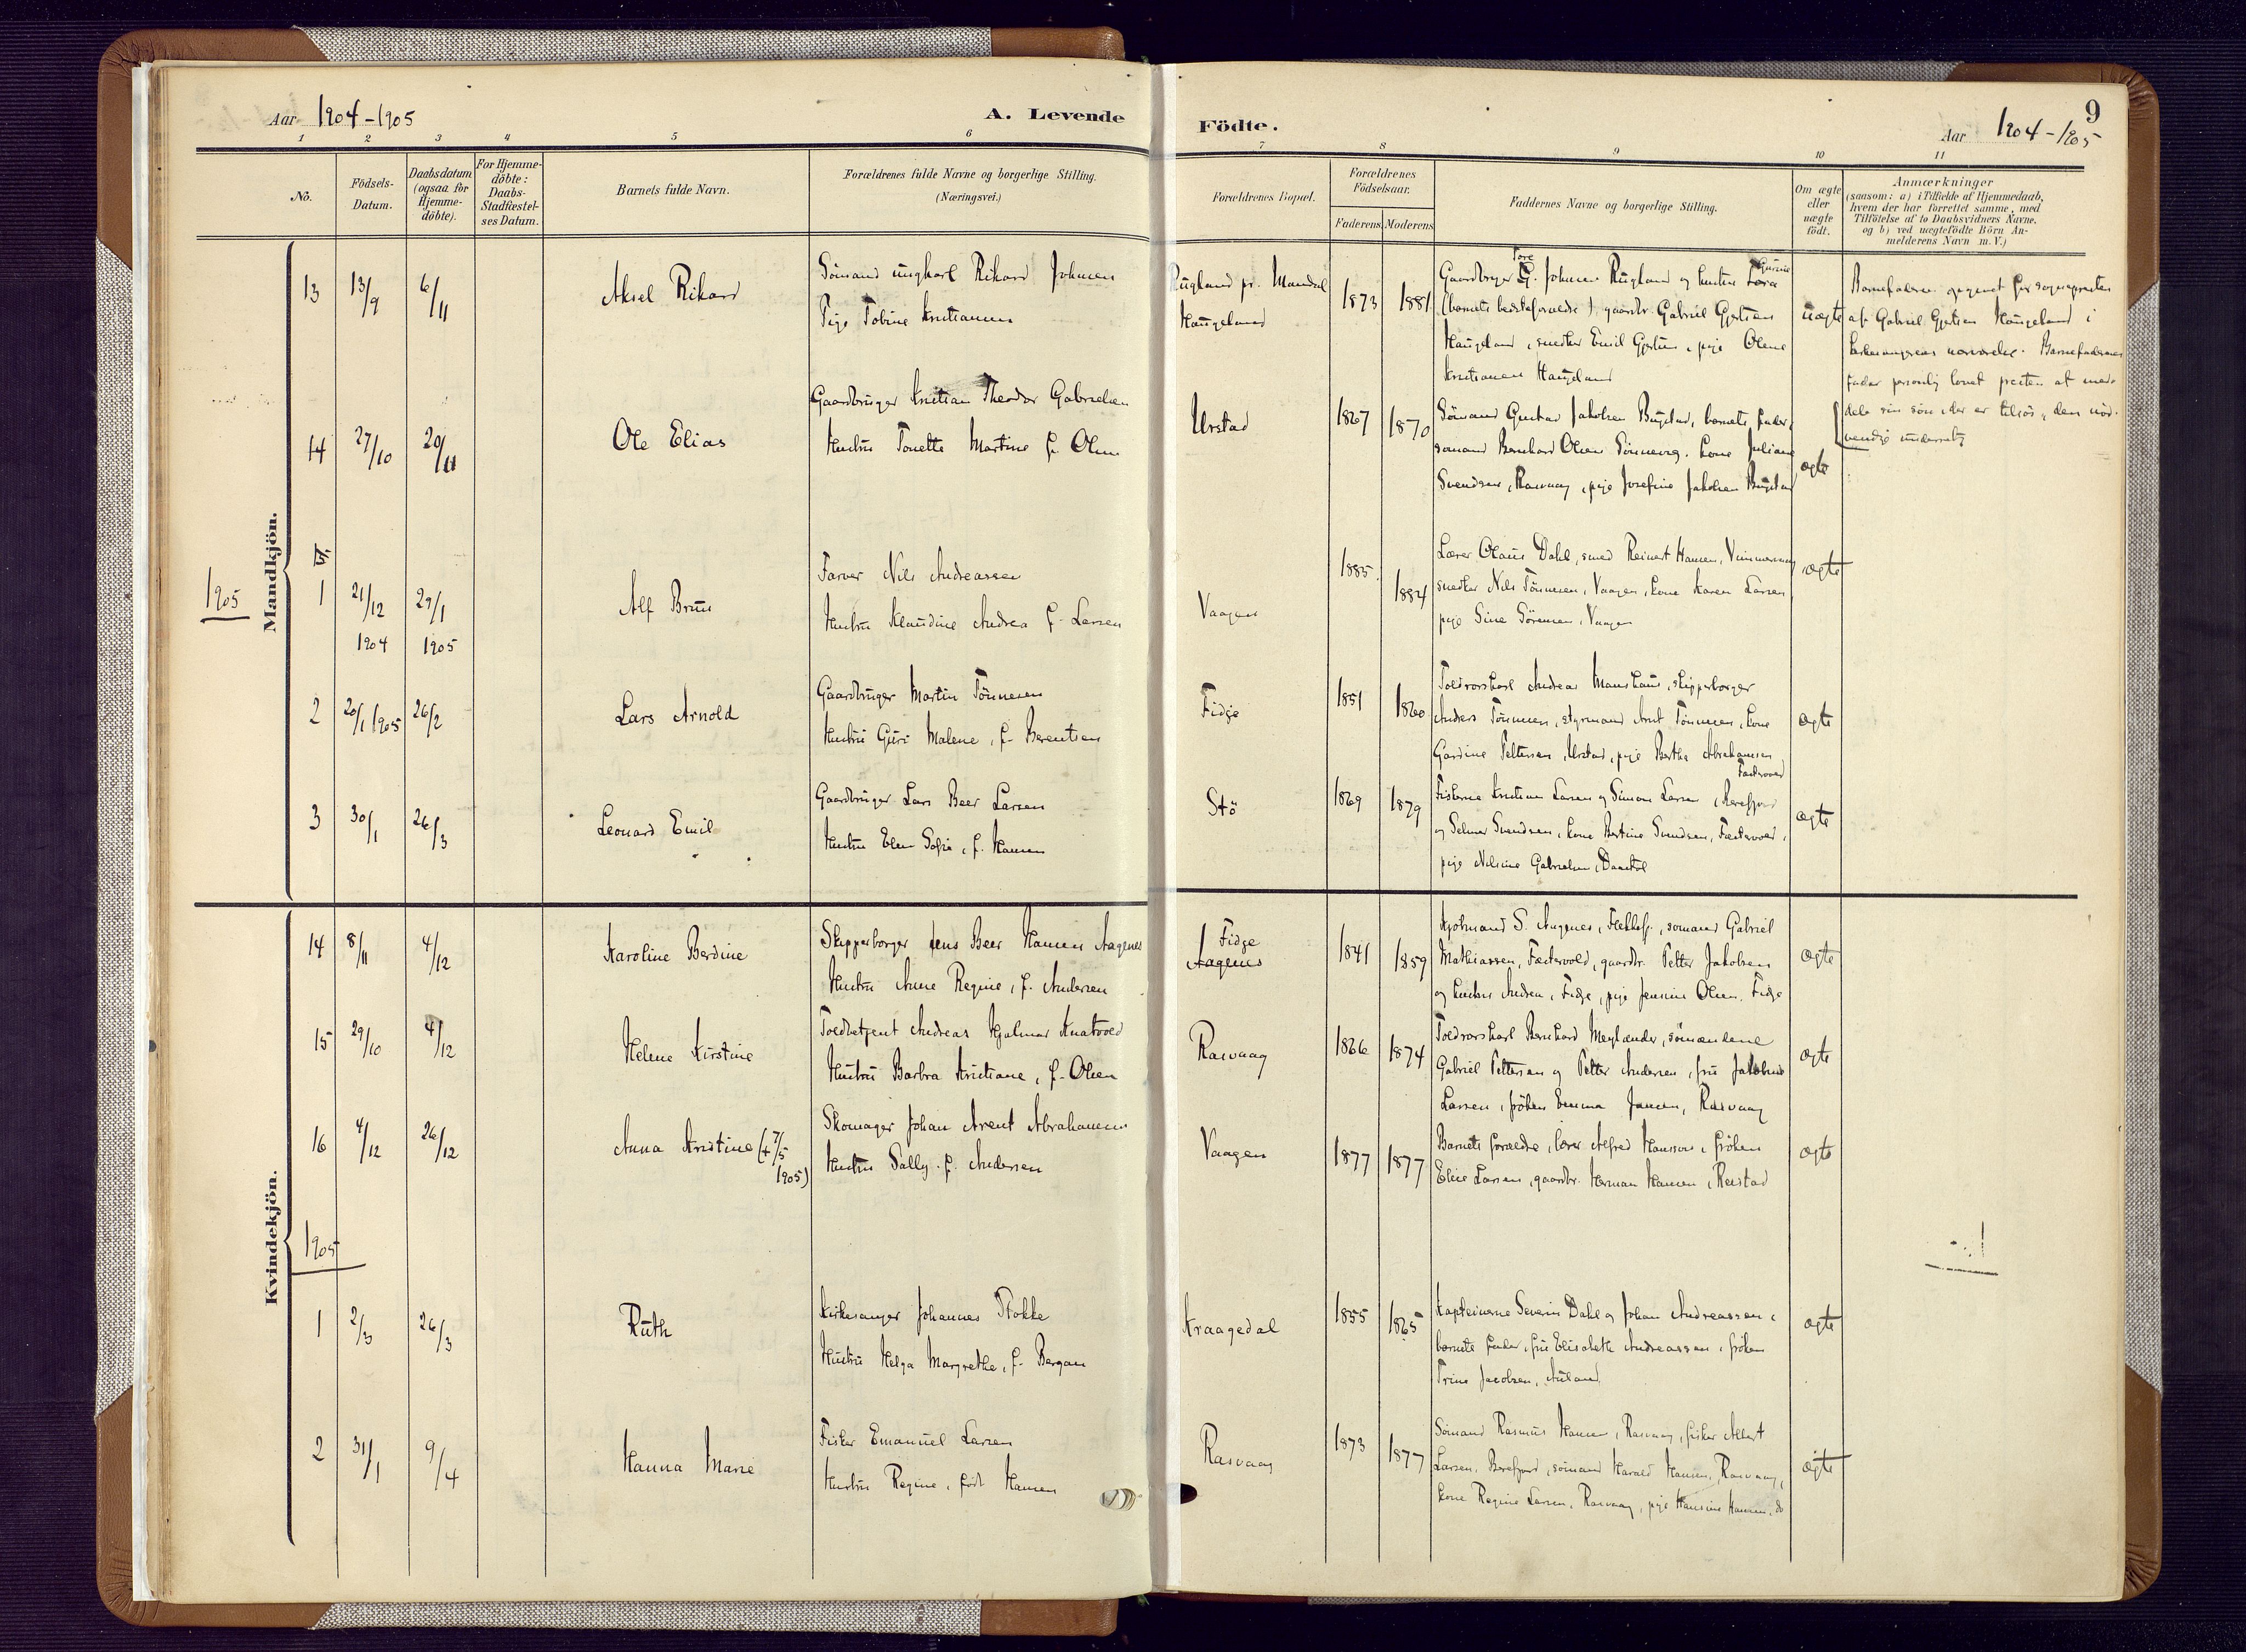 Aar 1904-1905
A. Levende
Födte.
9
Aar 1904-1905
1 2 3 4 5 6 7 8 9 10 11
No.
Födsels-
Datum.
Daabsdatum
(ogsaa for
Hjemme-
döbte).
For Hjemme-
döbte:
Daabs-
Stadfæstel-
ses Datum.
Barnets fulde Navn.
Forældrenes fulde Navne og borgerlige Stilling.
(Næringsvei.)
Forældrenes Bopæl.
Forældrenes
Födselsaar.
Faderens
Moderens
Faddernes Navne og borgerlige Stilling.
Om ægte
eller
uægte
födt.
Anmærkninger
(saasom: a) i Tilfælde af Hjemmedaab,
hvem der har forrettet samme, med
Tilföielse af to Daabsvidners Navne,
og b) ved uægtefödte Börn An-
melderens Navn m. V.)
Mandkjön.
13 13/9 6/11
Aksel Rikard
Sömand ungkarl Rikard Johnsen
Pige Tobine Kristiansen
Rugland pr. Mandal
Haugeland
1873 1881
Tore
Gaardbruger G. Johnsen Rugland og hustru
Gurine
(barnets bedsteforældre), gaardbr. Gabriel Gjertsen
Haugeland, snedker Emil Gjertsen, pige Olene
Kristiansen Haugeland
uægte
Barnefaderen opgivet for sognepresten
af Gabriel Gjertsen Haugeland i
kirkesangerens nærværelse. Barnefaderens
fader personlig lovet presten at med-
dele sin sön, der er tilsjös, den nöd-
vendige underretn.
14 27/10 20/11
Ole Elias
Gaardbruger Kristian Theodor Gabrielsen
Hustru Tonette Martine f. Olsen
Urstad
1867 1870
Sömand Gustav Jakobsen Bugstad, barnets fader,
sömand Bernhard Olsen Sönnevig, kone Juliane
Svendsen, Rasvaag, pige Josefine Jakobsen Bugstad
ægte
1905
1 21/12 1904 29/1 1905
Alf Bruu
Farver Nils Andreassen
Hustru Klaudine Andrea f. Larsen
Vaagen
1885 1884
Lærer Olaus Dahl, smed Reinert Hansen,
snedker Nils Tönnesen, Vaagen, kone Karen Larsen,
pige Sine Sörensen, Vaagen
ægte
2 20/1 1905 26/2
Lars Arnold
Gaardbruger Martin Tönnesen
Hustru Guri Malene, f. Berentsen
Fidje
1851 1860
Toldrorskarl Andreas Monshaus, skipperborger
Anders Tönnesen, styrmand Arnt Tönnesen, kone
Gardine Pettersen, Urstad, pige Berthe Abrahamsen
Fædevoed
ægte
3 30/1 26/3
Leonard Emil
Gaardbruger Lars Beer Larsen
Hustru Elen Sofie, f. Hansen
Stö
1869 1879
Fiskerne Kristian Larsen og Simon Larsen,
og Selmer Svendsen, kone Bertine Svendsen,
pige Nilsine Gabrielsen, Daastöl
ægte
Kvindekjön.
14 8/11 4/12
Karoline Berdine
Skipperborger Jens Beer Hansen Aagenes
Hustru Anne Regine, f. Andersen
Fidje
Aagenes
1841 1859
Kjöbmand S. Aagenes, Flekkef., sömand Gabriel
Mathiassen, gaardbr. Petter Jakobsen
og hustru Andrea, Fidje, pige Jensine Olsen, Fidje
ægte
15 29/10 4/12
Helene Kirstine
Toldbetjent Andreas Hjalmar Knatvoed
Hustru Barbra Kristiane, f. Olsen
Rasvaag
1866 1874
Toldrorskarl Bernhard Meglænder, sömændene
Gabriel Pettersen og Petter Andersen, fru Jakobine
Larsen, fröken Emma Jansen, Rasvaag
ægte
16 4/12 26/12
Anna Kristine (+ 7/5
1905)
Skomager Johan Arent Abrahamsen
Hustru Sally f. Andersen
Vaagen
1877 1877
Barnets forældre, lærer Alfred Hansson, fröken
Elise Larsen, gaardbr. Herman Hansen,
ægte
1905
1 2/3 26/3
Ruth
Kirkesanger Johannes Stokke
Hustru Helga Margrethe, f. Bergan
Kraagedal
1855 1865
Kapteinerne Severin Dahl og Johan Andreassen,
barnets fader, fru Elisabeth Andreassen, fröken
Trine Jacobsen, Auland
ægte
2 31/1 9/4
Hanna Marie
Fisker Emanuel Larsen
Hustru Regine, födt Hansen
Rasvaag
1873 1877
Sömand Rasmus Hansen, Rasvaag, fisker Albert
Larsen, sömand Harald Hansen, Rasvaag,
kone Regine Larsen, Rasvaag, pige Hansine Hansen, do
ægte